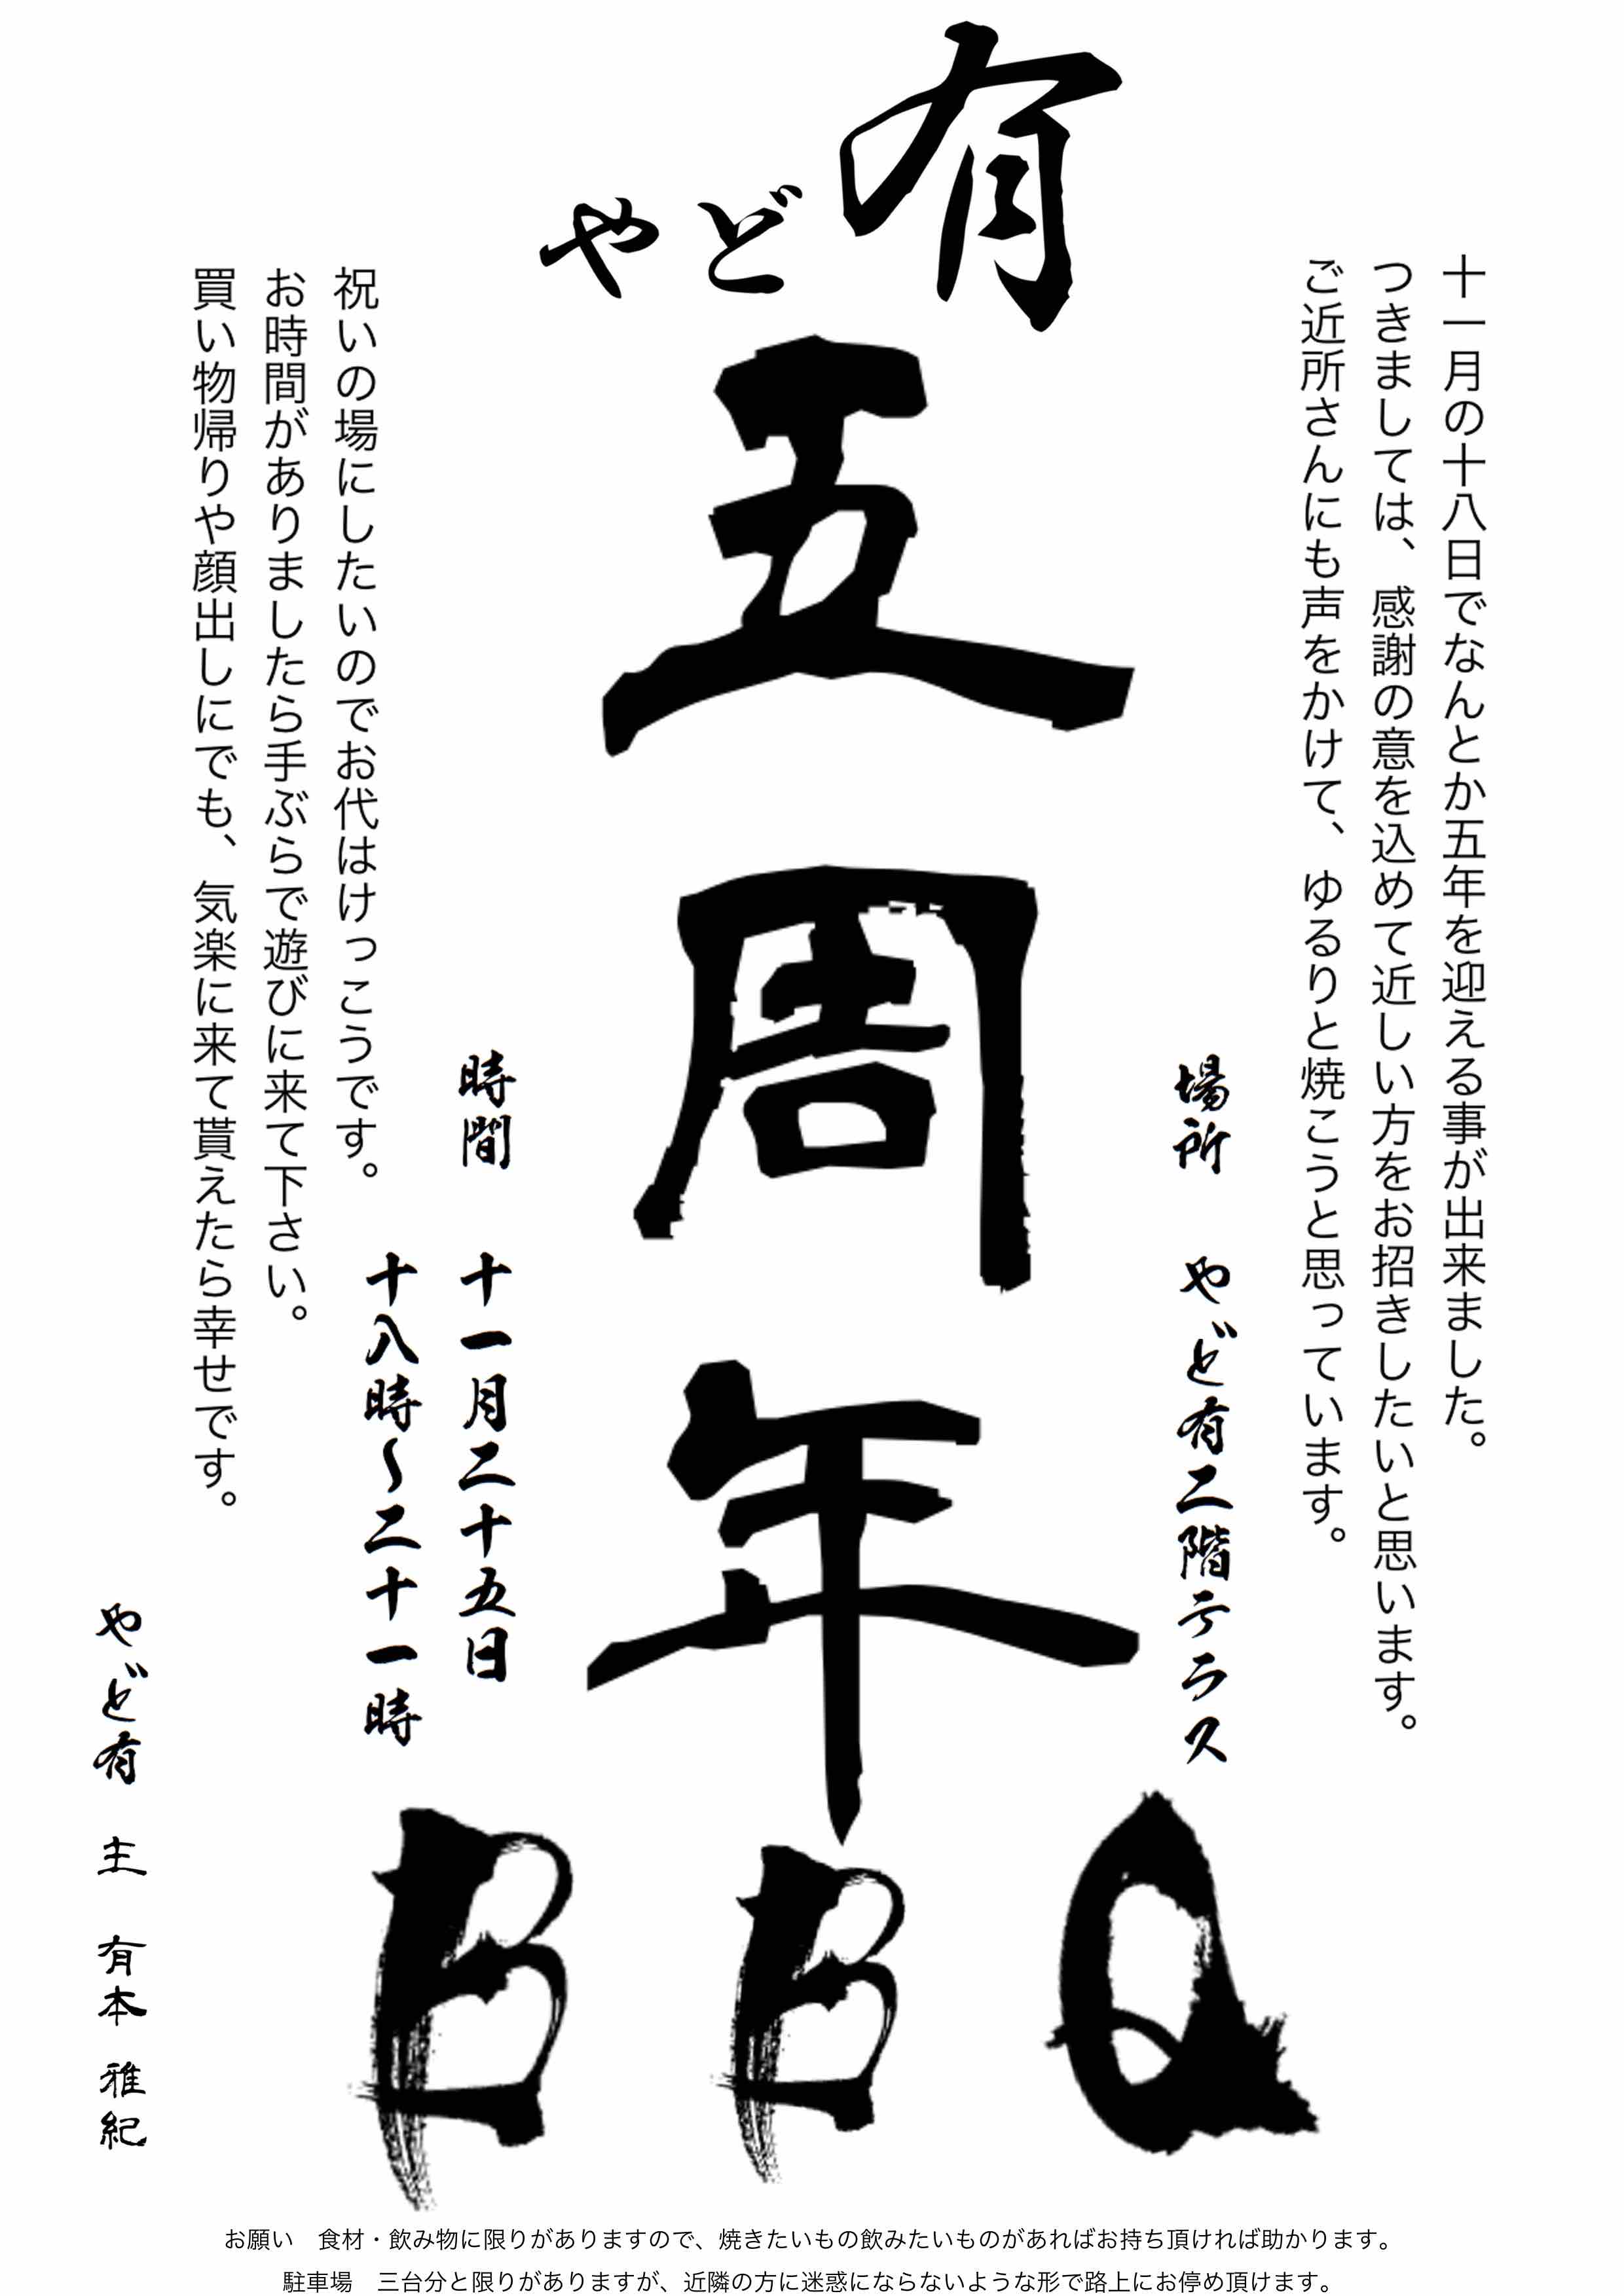 やど有
五周年
BBQ
十一月の十八日でなんとか五年を迎える事が出来ました。
つきましては、感謝の意を込めて近しい方をお招きしたいと思います。
ご近所さんにも声をかけて、ゆるりと焼こうと思っています。
場所　やど有二階テラス
時間　十一月二十五日
十八時〜二十一時
祝いの場にしたいのでお代はけっこうです。
お時間がありましたら手ぶらで遊びに来て下さい。
買い物帰りや顔出しにでも、気楽に来て貰えたら幸せです。
やど有　主　有本 雅紀
お願い　食材・飲み物に限りがありますので、焼きたいもの飲みたいものがあればお持ち頂ければ助かります。
駐車場　三台分と限りがありますが、近隣の方に迷惑にならないような形で路上にお停め頂けます。